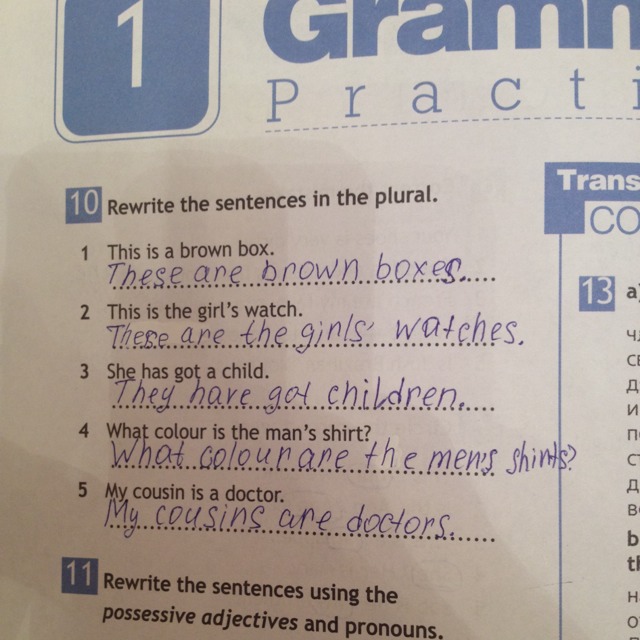 1
Gramm
Practi
10 Rewrite the sentences in the plural.
1 This is a brown box.
These are brown boxes.
2 This is the girl's watch.
These are the girls' watches.
3 She has got a child.
They have got children.
4 What colour is the man's shirt?
What colour are the men's shirts?
5 My cousin is a doctor.
My cousins are doctors.
11 Rewrite the sentences using the
possessive adjectives and pronouns.
Trans
CO
13 a
b